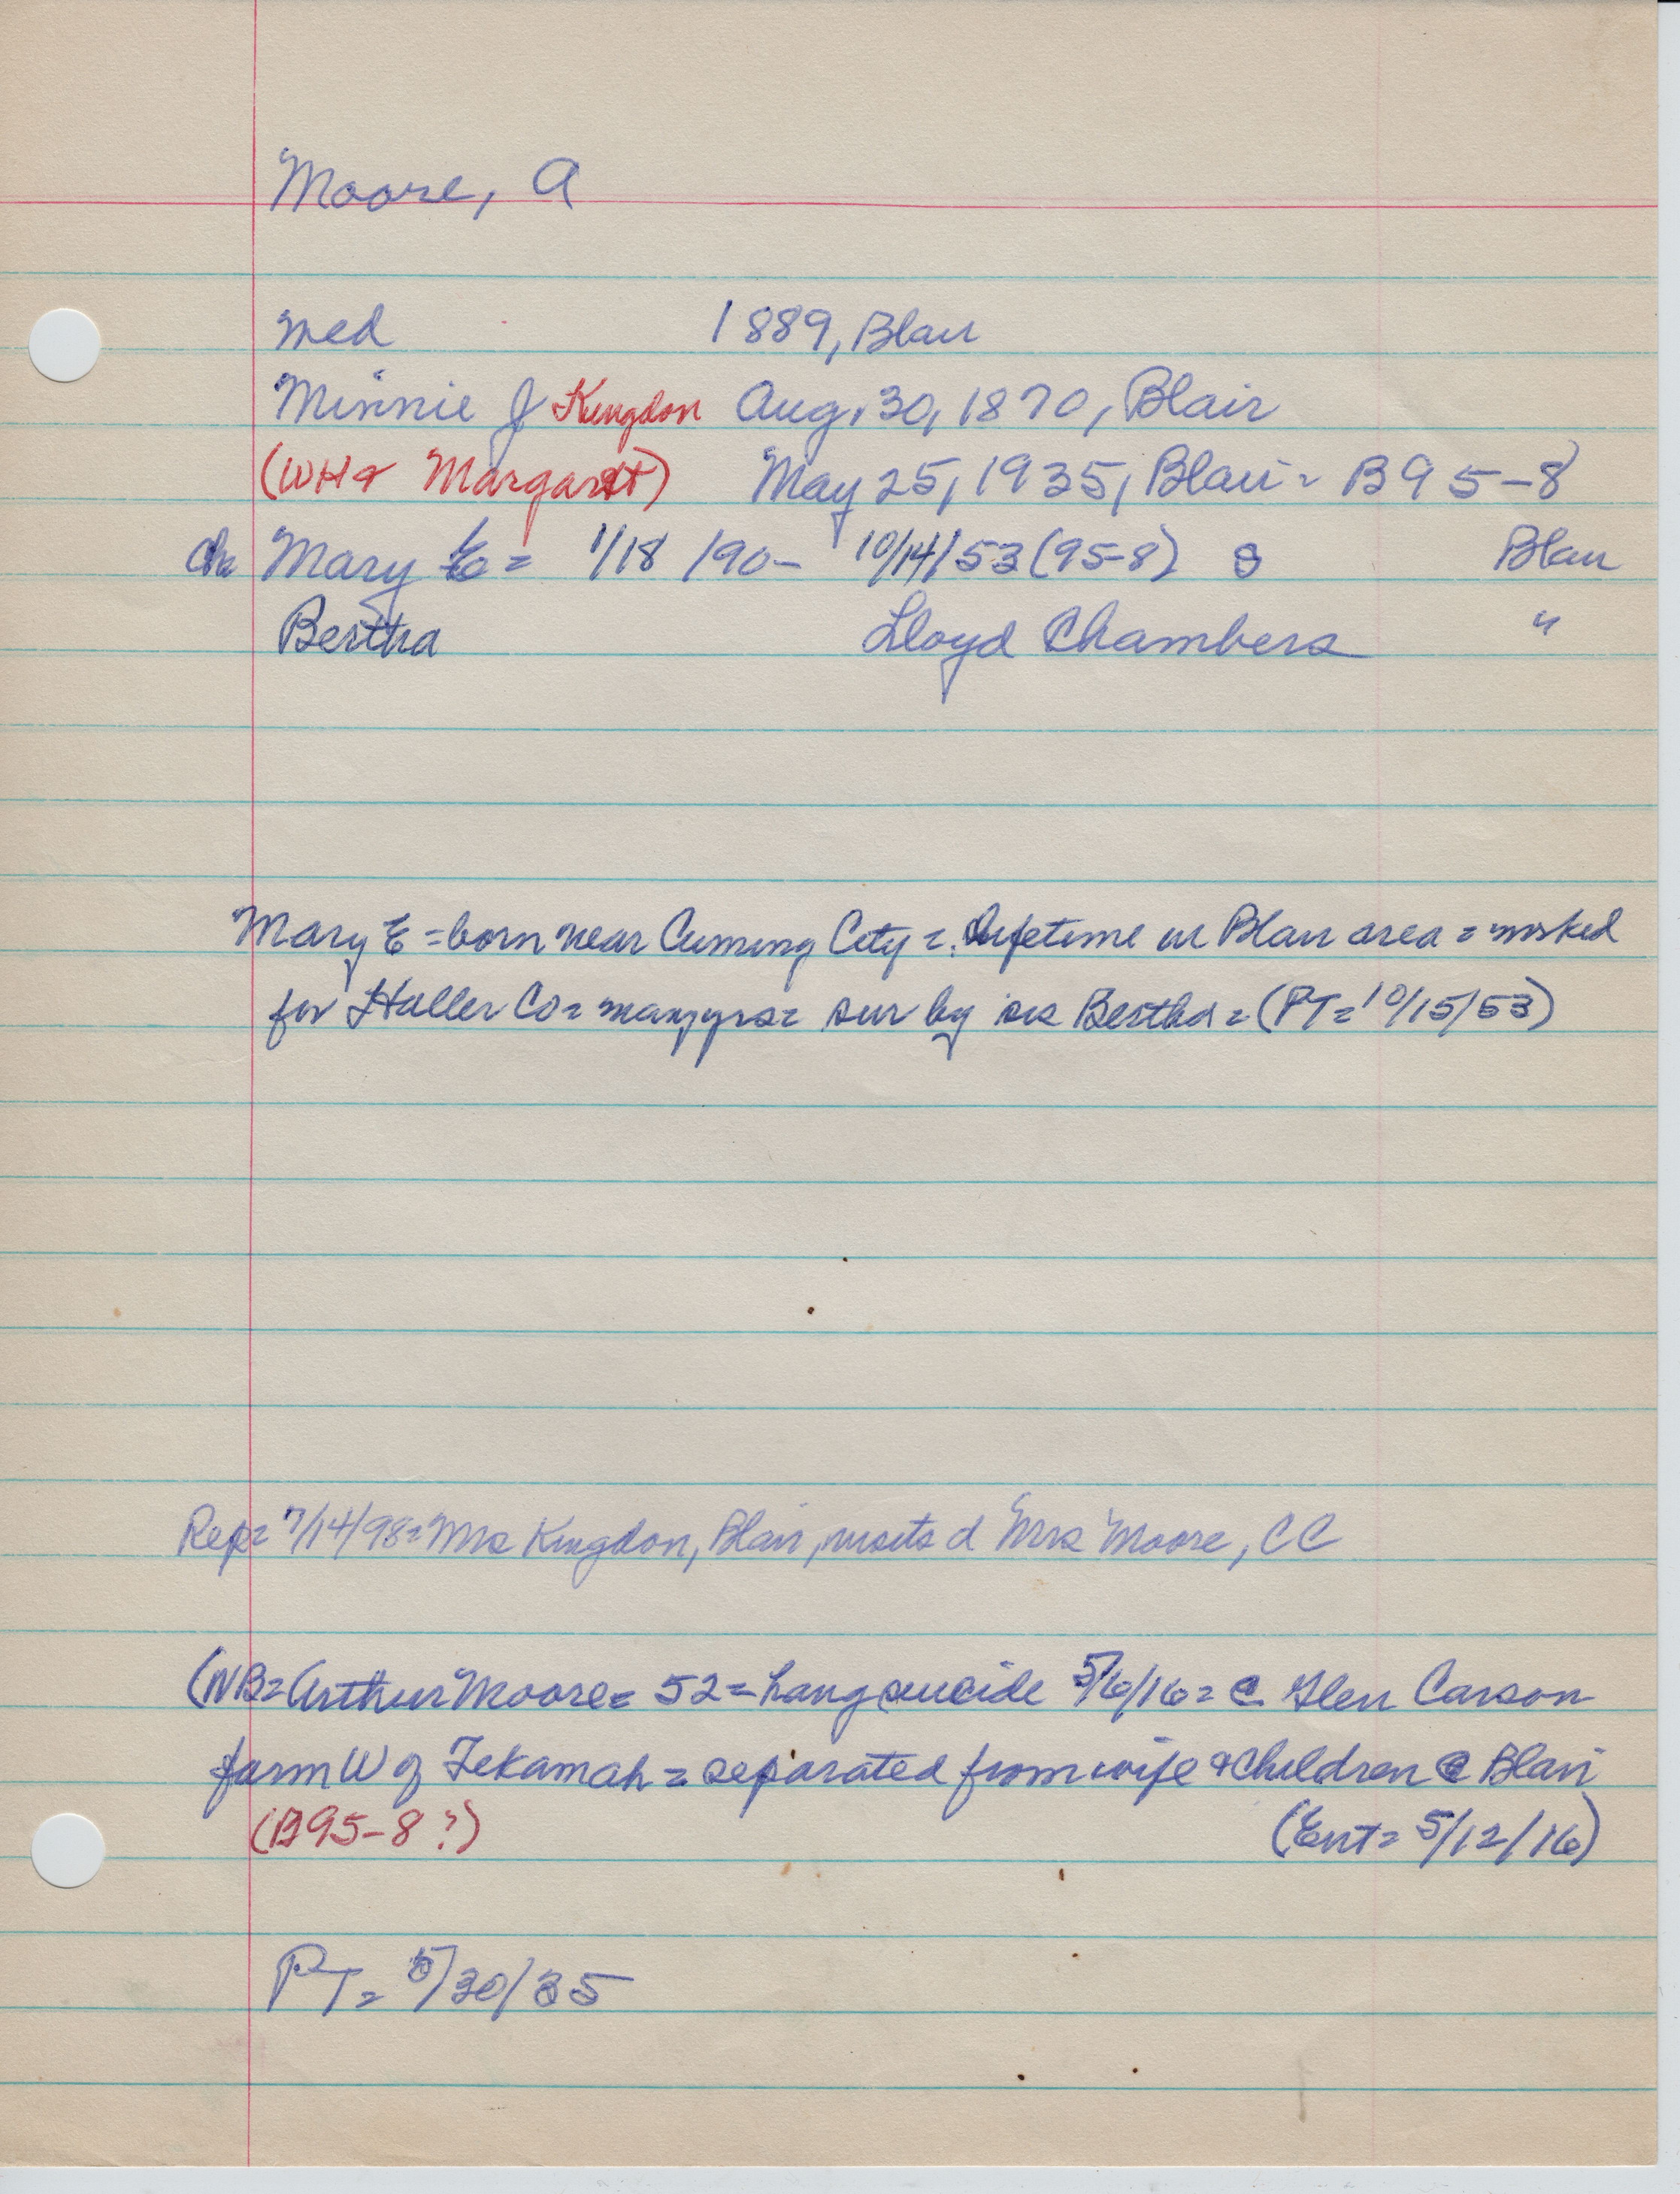 Moore, A
Med 1889, Blair
Minnie J Kingdon Aug, 30, 1870, Blair
(WH & Margaret) May 25, 1935, Blair = B95-8
Ch Mary E = 1/18/90 - 10/14/53 (95-8) S Blair
Bertha Lloyd Chambers "
Mary E = born near Cuming City = Lifetime in Blair area = worked
for Haller Co = many yrs = sur by sis Bertha = (PT = 10/15/53)
Rep = 7/14/98 = Mrs Kingdon, Blair, visits d Mrs Moore, CC
(NB = Arthur Moore = 52 = hang suicide 5/6/16 = @ Glen Carson
farm W of Tekamah = separated from wife & children @ Blair
(B95-8?) (Ent = 5/12/16)
PT = 5/30/35